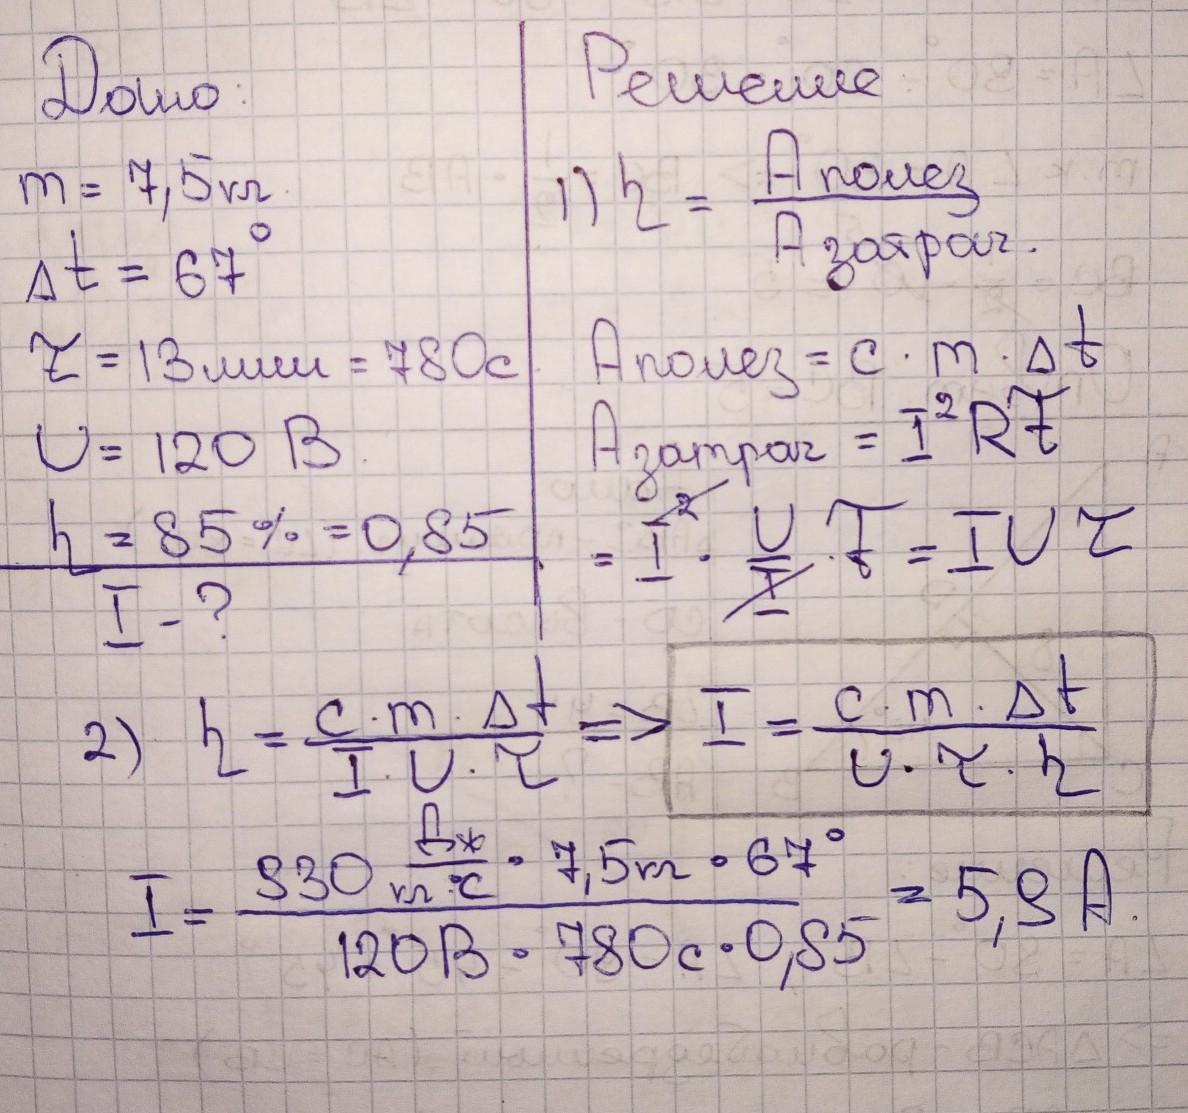 Дано:
m = 7,5 кг
Δt = 67°
τ = 13 мин = 780с
U = 120 В
η = 85% = 0,85
I - ?
Решение
1) η = Аполез / Азатрач.
Аполез = c · m · Δt
Азатрач = I²Rτ
= I² · U/I · τ = IUτ
2) η = c·m·Δt / I·U·τ => I = c·m·Δt / U·τ·η
I = 930 Дж/кг·°С · 7,5кг · 67° / 120В · 780с · 0,85 = 5,9 А.